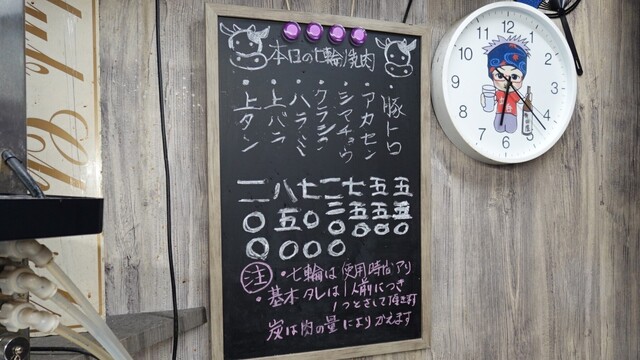 本日の七輪焼肉
・豚トロ 五五〇
・アカセン 五五〇
・シマチョウ 七五〇
・ハラミ 七〇〇
・上バラ 八五〇
・上タン
注 ・七輪は使用時間アリ
・基本タレは1人前につき
1つとさせて頂きます
炭は肉の量によりかえます
12
1
2
3
4
5
6
7
8
9
10
11